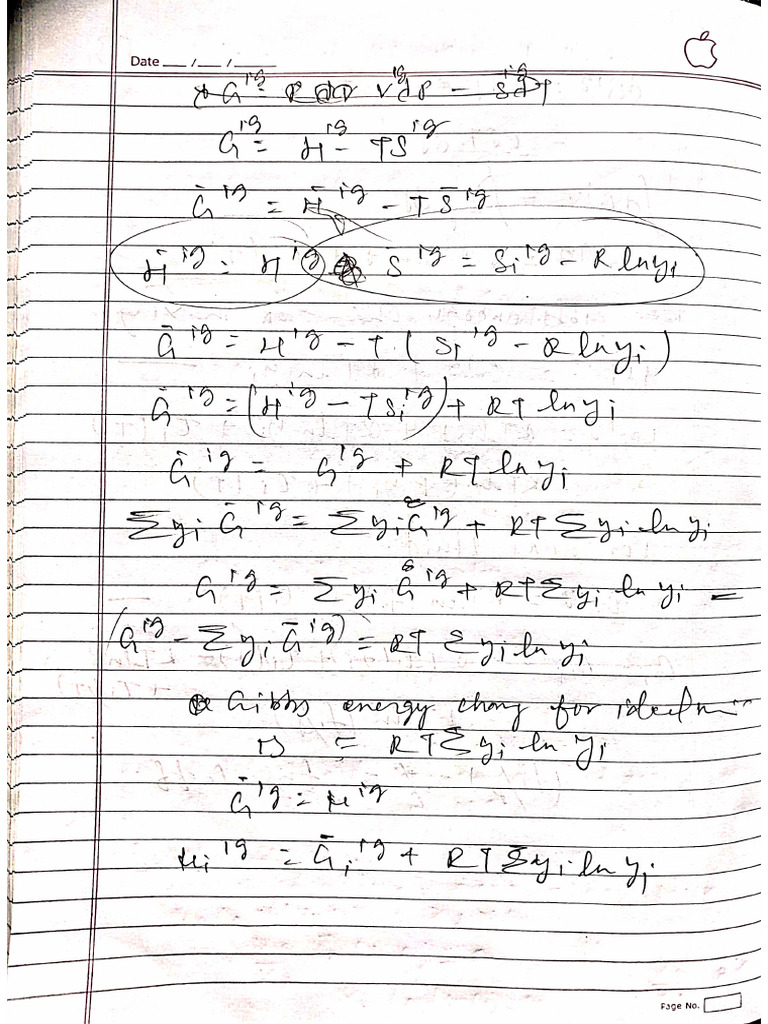 Date ___ / ___ / _____
G^ig = R V^ig dP - S^ig dT
G^ig = H^ig - TS^ig
Ḡ^ig = H̄^ig - T S̄^ig
H̄^ig = H^ig S̄^ig = Si^ig - R ln yi
Ḡ^ig = H^ig - T (Si^ig - R ln yi)
Ḡ^ig = (H^ig - TSi^ig) + RT ln yi
Ḡ^ig = G^ig + RT ln yi
Σyi Ḡ^ig = Σyi G^ig + RT Σyi ln yi
G^ig = Σyi G^ig + RT Σyi ln yi =
(G^ig - Σyi Ḡ^ig) = RT Σyi ln yi
Gibbs energy chang for ideal
is = RT Σyi ln yi
Ḡ^ig = μ^ig
μi^ig = Ḡi^ig + RT Σyi ln yi
Page No.